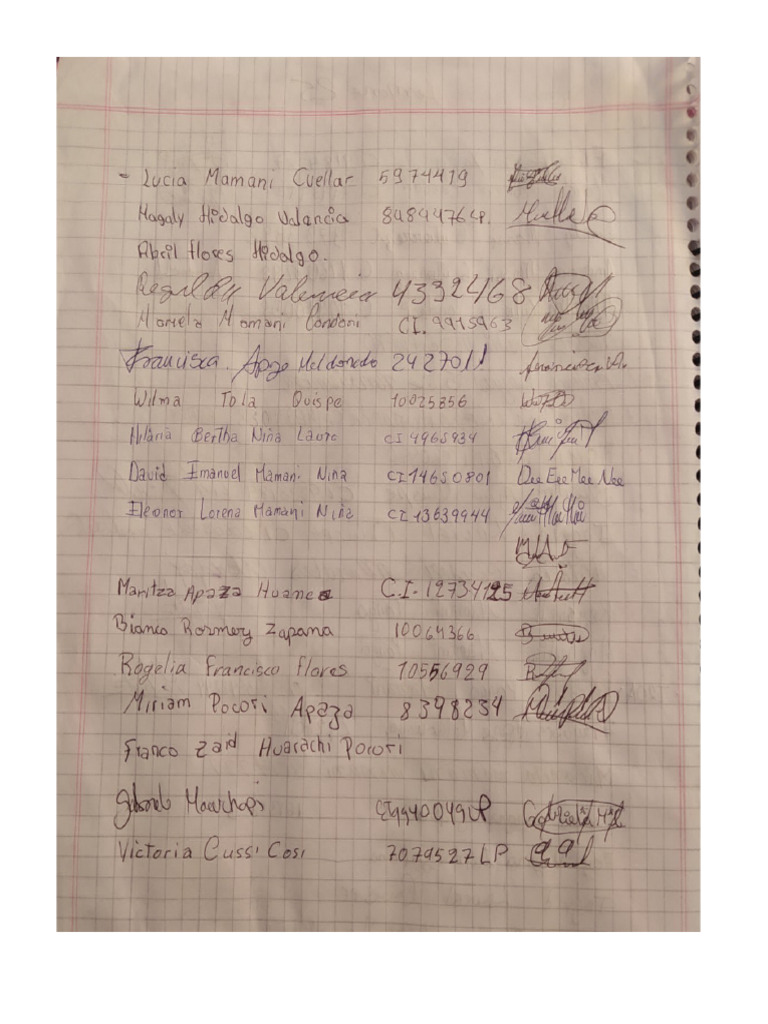 - Lucia Mamani Cuellar 5974419
Magaly Hidalgo Valancia 8484476 LP.
Abril flores Hidalgo.
Valencia 4332468
Mariela Mamani Condori CI. 9915963
Francisca. Apaza Maldonado 2427011
Wilma Tola Quispe 10025856
Hilaria Bertha Nina Laura CI 4965934
David Imanuel Mamani Nina CI 14650801 Dee Eee Mee Nee
Eleonor Lorena Mamani Nina CI 13639944
Maritza Apaza Huanca C.I. 12734125
Bianca Rosmery Zapana 10064366
Rogelia Francisco Flores 10556929
Miriam Pocori Apaza 8398234
Franco Zaid Huarachi Pocori
CI9940049LP
Victoria Cussi Cosi 7079527 LP